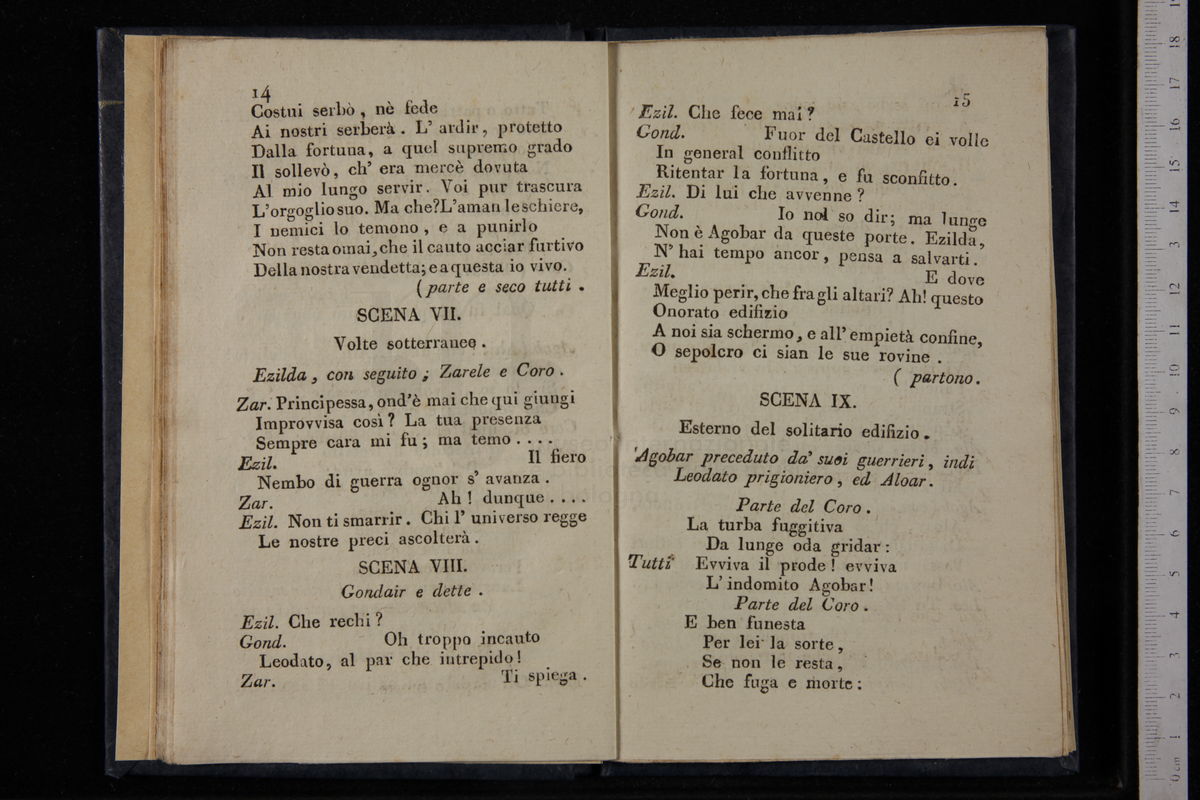 14
Costui serbò, nè fede
Ai nostri serberà. L' ardir, protetto
Dalla fortuna, a quel supremo grado
Il sollevò, ch' era mercè dovuta
Al mio lungo servir. Voi pur trascura
L'orgoglio suo. Ma che? L'aman le schiere,
I nemici lo temono, e a punirlo
Non resta omai, che il cauto acciar furtivo
Della nostra vendetta; e a questa io vivo.
(parte e seco tutti.
SCENA VII.
Volte sotterranee.
Ezilda, con seguito; Zarele e Coro.
Zar. Principessa, ond'è mai che qui giungi
Improvvisa così? La tua presenza
Sempre cara mi fu; ma temo....
Ezil. Il fiero
Nembo di guerra ognor s' avanza.
Zar. Ah! dunque....
Ezil. Non ti smarrir. Chi l' universo regge
Le nostre preci ascolterà.
SCENA VIII.
Gondair e dette.
Ezil. Che rechi?
Gond. Oh troppo incauto
Leodato, al par che intrepido!
Zar. Ti spiega.
15
Ezil. Che fece mai?
Gond. Fuor del Castello ei volle
In general conflitto
Ritentar la fortuna, e fu sconfitto.
Ezil. Di lui che avvenne?
Gond. Io nol so dir; ma lunge
Non è Agobar da queste porte. Ezilda,
N' hai tempo ancor, pensa a salvarti.
Ezil. E dove
Meglio perir, che fra gli altari? Ah! questo
Onorato edifizio
A noi sia schermo, e all' empietà confine,
O sepolcro ci sian le sue rovine.
( partono.
SCENA IX.
Esterno del solitario edifizio.
Agobar preceduto da' suoi guerrieri, indi
Leodato prigioniero, ed Aloar.
Parte del Coro.
La turba fuggitiva
Da lunge oda gridar:
Tutti Evviva il prode! evviva
L' indomito Agobar!
Parte del Coro.
E ben funesta
Per lei la sorte,
Se non le resta,
Che fuga e morte: